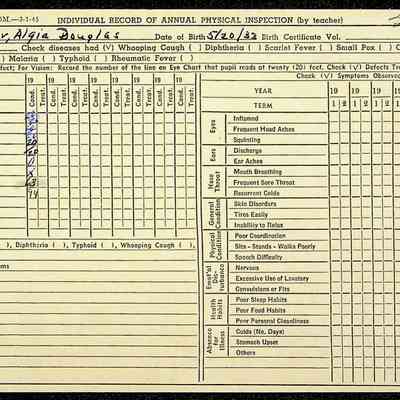 OM.—3-1-45 INDIVIDUAL RECORD OF ANNUAL PHYSICAL INSPECTION (by teacher)
Algia Douglas Date of Birth 5/20/33 Birth Certificate Vol.
Check diseases had (√) Whooping Cough ( ) | Diphtheria ( ) | Scarlet Fever ( ) | Small Pox ( ) C
) | Malaria ( ) | Typhoid ( ) | Rheumatic Fever ( )
fect; For Vision: Record the number of the line on Eye Chart that pupil reads at twenty (20) feet. Check (√) Defects Tr
19 19 19 19 19 19 Check (√) Symptoms Observed
Cond. Treat. Cond. Treat. Cond. Treat. Cond. Treat. Cond. Treat. Cond. Treat.
YEAR 19 19 19 19
TERM 1 2 1 2 1 2 1
Eyes
Inflamed
Frequent Head Aches
Squinting
20
20
Ears
Discharge
Ear Aches
Nose Throat
Mouth Breathing
Frequent Sore Throat
Recurrent Colds
63
74
General Condition
Skin Disorders
Tires Easily
Inability to Relax
Physical Condition
Poor Coordination
Sits - Stands - Walks Poorly
Speech Difficulty
), Diphtheria ( ), Typhoid ( ), Whooping Cough ( )
Emot'al Dis- turbance
Nervous
Excessive Use of Lavatory
Convulsions or Fits
Health Habits
Poor Sleep Habits
Poor Food Habits
Poor Personal Cleanliness
Absence for Illness
Colds (No. Days)
Stomach Upset
Others